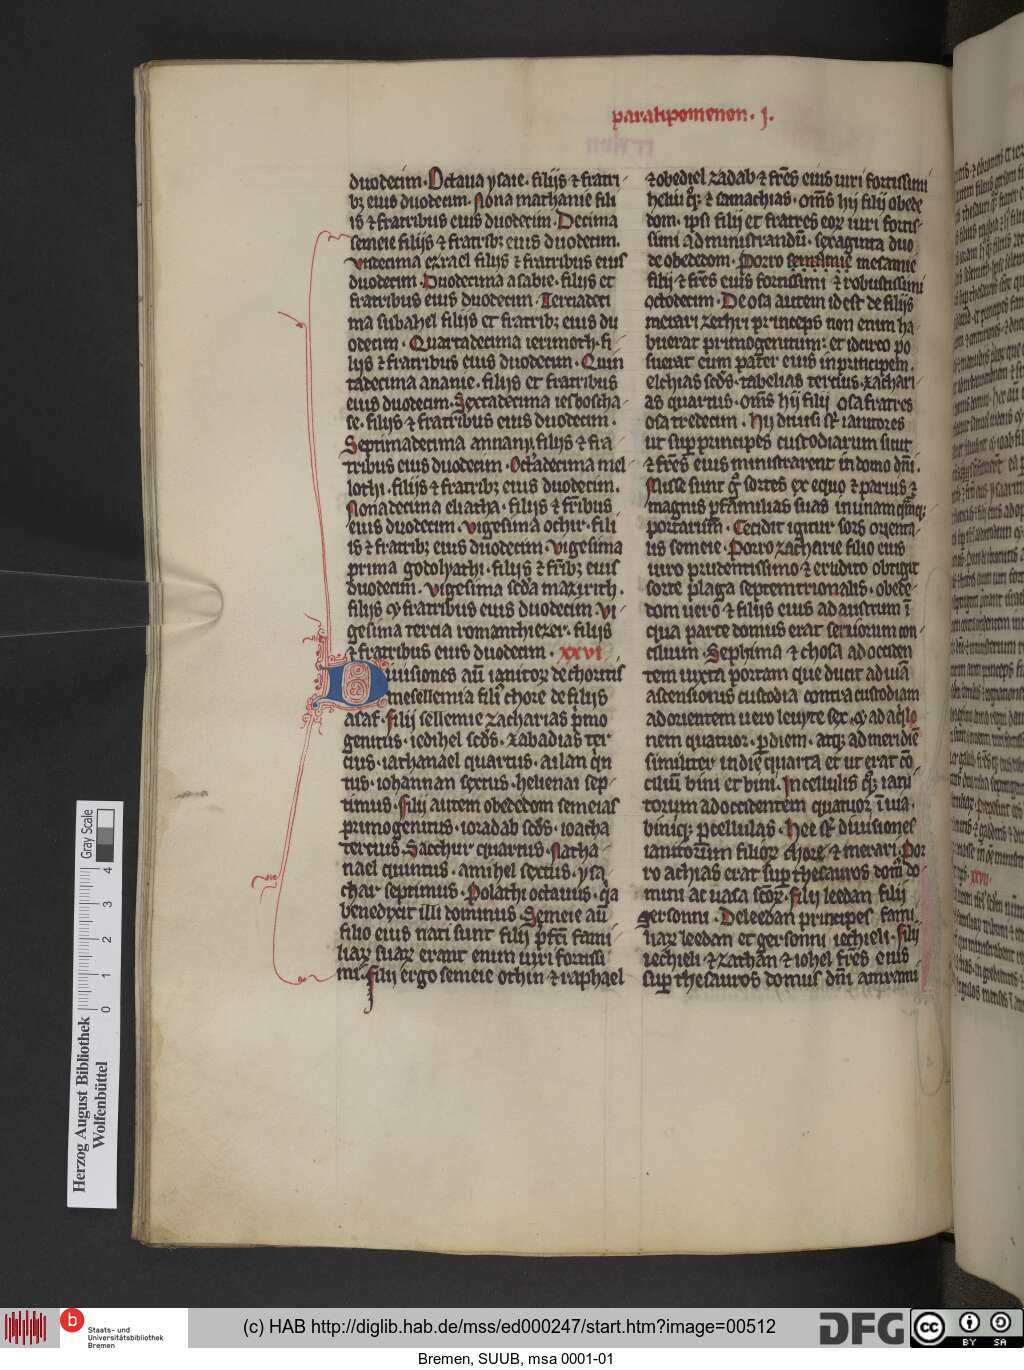 paralipomenon · j ·
duodecim · Octaua ysaie · filijs ⁊ fratri
bꝫ eius duodecim · Nona mathanie fili
is ⁊ fratribus eius duodecim · Decima
semeie filijs ⁊ fratribꝫ eius duodecim ·
vndecima ezrael filijs ⁊ fratribus eius
duodecim · Duodecima asabie · filijs et
fratribus eius duodecim · Terciadeci
ma subahel filijs et fratribꝫ eius du
odecim · Quartadecima ierimoth · fi
lijs ⁊ fratribus eius duodecim · Quin
tadecima ananie · filijs et fratribus
eius duodecim · Sextadecima iesboscha
se · filijs ⁊ fratribus eius duodecim ·
Septimadecima annany · filijs ⁊ fra
tribus eius duodecim · Octadecima mel
lothi · filijs ⁊ fratribꝫ eius duodecim ·
Nonadecima eliatha · filijs ⁊ fr̄ibus
eius duodecim · vigesima othir · fili
is ⁊ fratribꝫ eius duodecim · vigesima
prima godolyathi · filijs ⁊ fr̄ibꝫ eius
duodecim · vigesima scd̄a mazirith ·
filijs ⁊ fratribus eius duodecim · vi
gesima tercia romanthiezer · filijs
⁊ fratribus eius duodecim · xxvi
Diuisiones aū ianitoꝝ de choritis
mesellemia fili' chore de filijs
asaf · filij sellemie zacharias p̄mo
genitus · iedihel scd̄s · zabadias ter
cius · iathanael quartus · ailan qin
tus · iohannan sextus · helienai sep
timus · filij autem obededom semeias
primogenitus · iozadab scd̄s · ioacha
tercius · Sacchur quartus · Natha
nael quintus · amihel sextus · ysa
char septimus · Polathi octauus · q̄a
benedixit illi dominus · Semeie aū
filio eius nati sunt filij p̄fc̄i fami
liaꝝ suaꝝ erant enim uiri fortissi
mi · filij ergo semeie othin ⁊ raphael
⁊ obediel zadab ⁊ fr̄es eius uiri fortissimi
heliu qꝫ ⁊ samachias · om̄s hij filij obede
dom · ipsi filij et fratres eoꝝ uiri fortis
simi ad ministrandū · sexaginta duo
de obededom · Porro semeie mesamie
filij ⁊ fr̄es eius fortissimi ⁊ robustissimi
octodecim · De osa autem id est de filijs
merari zechri princeps non enim ha
buerat primogenitum : et idcirco po
suerat eum pater eius in principem ·
elchias scd̄s · tabelias tercius · zachari
as quartus · om̄s hij filij osa fratres
osa tredecim · Hij diuisi sͭ ianitores
ut semp principes custodiarum sicut
⁊ fr̄es eius ministrarent in domo dn̄i ·
Misse sunt g° sortes ex equo ⁊ paruis ⁊
magnis p familias suas in unam qamqꝫ
portarum · Cecidit igitur sors orienta
lis semeie · Porro zacharie filio eius
uiro prudentissimo ⁊ erudito obtigit
sorte plaga septemtrionalis · obede
dom uero ⁊ filijs eius ad austrum ī
qua parte domus erat seniorum con
cilium · Sephima ⁊ chosa ad occiden
tem iuxta portam que ducit ad uiam
ascensionis custodia contra custodiam
ad orientem uero leuyte sex · ⁊ ad aqilo
nem quatuor · p diem · atqꝫ ad meridiē
similiter in die quatta et ut erat cō
ciliū bini et bini · In cellulis qꝫ iani
torum ad occidentem quatuor ī uia ·
biniqꝫ p cellulas · Hee sͭ diuisiones
ianitorum filioꝝ chore ⁊ merari · Por
ro achias erat sup thesauros dom' do
mini ac uasa scōꝝ · filij leedan filij
gersonni · De leedan principes fami
liaꝝ leedan et gersonni iechieli · filij
iechieli ⁊ zathan ⁊ iohel fr̄es eius
sup thesauros domus dn̄i amrami
Gray Scale
0 1 2 3 4
Herzog August Bibliothek
Wolfenbüttel
b
Staats- und
Universitätsbibliothek
Bremen
(c) HAB http://diglib.hab.de/mss/ed000247/start.htm?image=00512
DFG
cc
BY SA
Bremen, SUUB, msa 0001-01